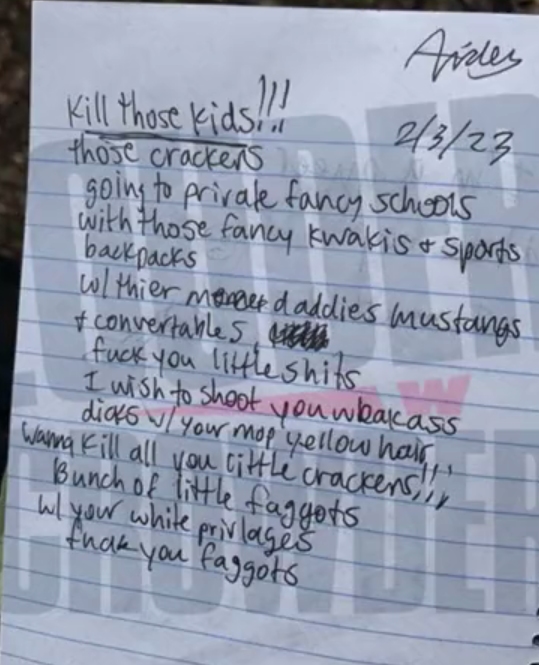 Aiden
Kill those kids!!!
2/3/23
those crackers
going to private fancy schools
with those fancy kwakis + sports
backpacks
w/ thier daddies mustangs
+ convertables
fuck you little shits
I wish to shoot you weakass
dicks w/ your mop yellow hair
wanna kill all you little crackers!!!
Bunch of little faggots
w/ your white privlages
fuck you faggots
LOUDER
W
CROWDER